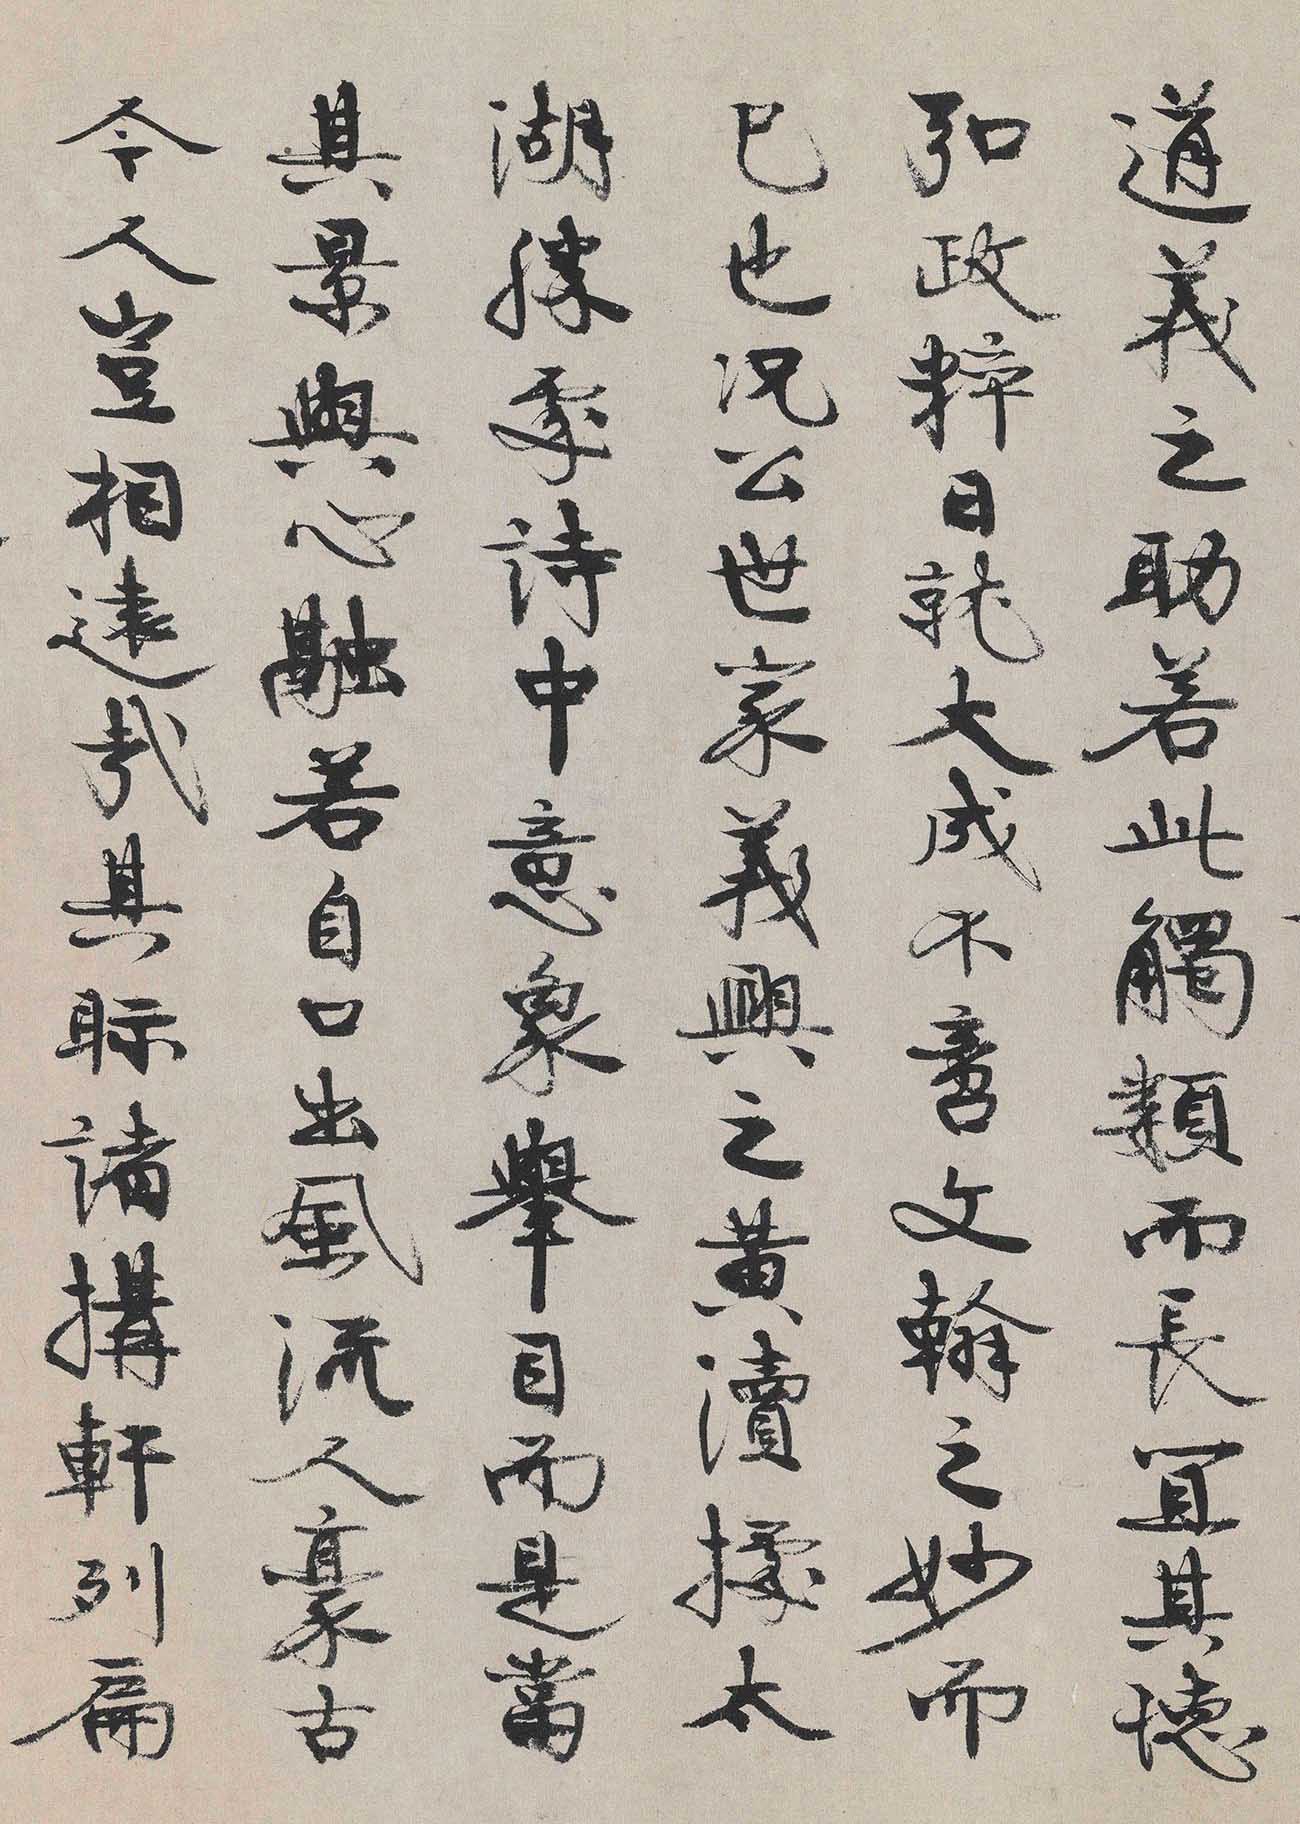 道義之助若此觸類而長宜其德
弘政粹日就大成不啻文翰之妙而
已也況公世家義興之黃瀆據太
湖勝處詩中意象舉目而是當
其景與心融若自口出風流人豪古
今人豈相遠哉其眎諸搆軒列扁